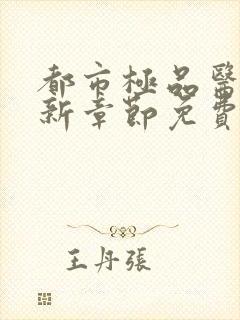 都市極品醫
新章節免費
王丹張